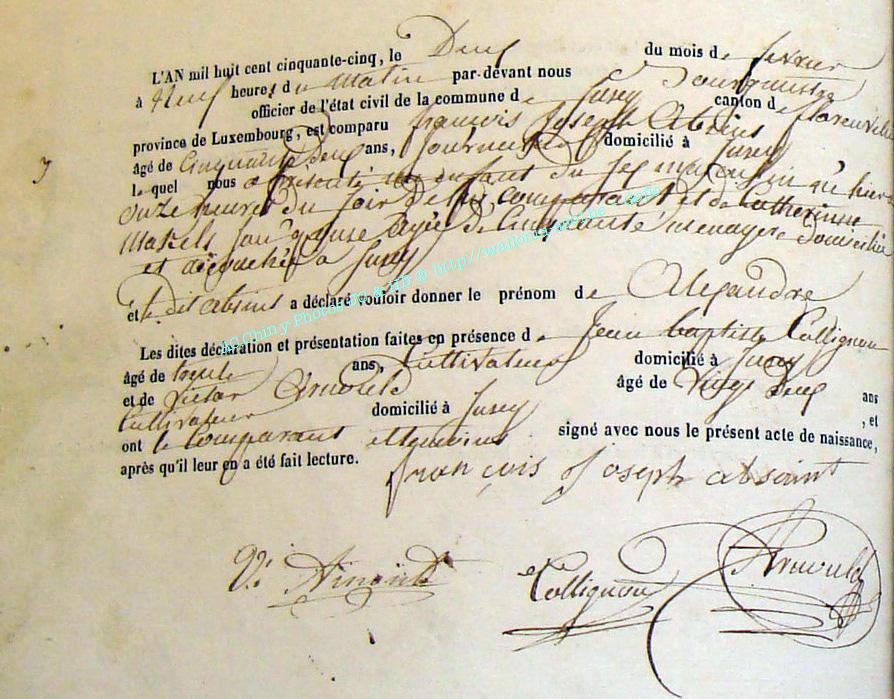 L'AN mil huit cent cinquante-cinq, le Deux du mois de fevrier
à Neuf heures du Matin par-devant nous Bourgmestre
officier de l'état civil de la commune de Suxey canton de florenville
province de Luxembourg, est comparu françois Joseph Absins
âgé de Cinquante Deux ans, Journalier domicilié à Suxey
lequel nous a présenté un enfant du sex masculin né hier
onze heures du soir de lui comparant et de Catherinne
Makels âgée de Cinquante menagere domicilié
et accouchée a Suxey
et le dit absins a déclaré vouloir donner le prénom de Alexandre
Les dites déclaration et présentation faites en présence de Jean baptiste Collignon
âgé de trente ans, Cultivateur domicilié à Suxey
et de Victor Arnould âgé de Vingt Deux ans
Cultivateur domicilié à Suxey , et
ont le Comparant et temoins signé avec nous le présent acte de naissance,
après qu'il leur en a été fait lecture.
francois Joseph absaint
Vi Arnould Collignon Arnould
http://wallonia-asbl.be